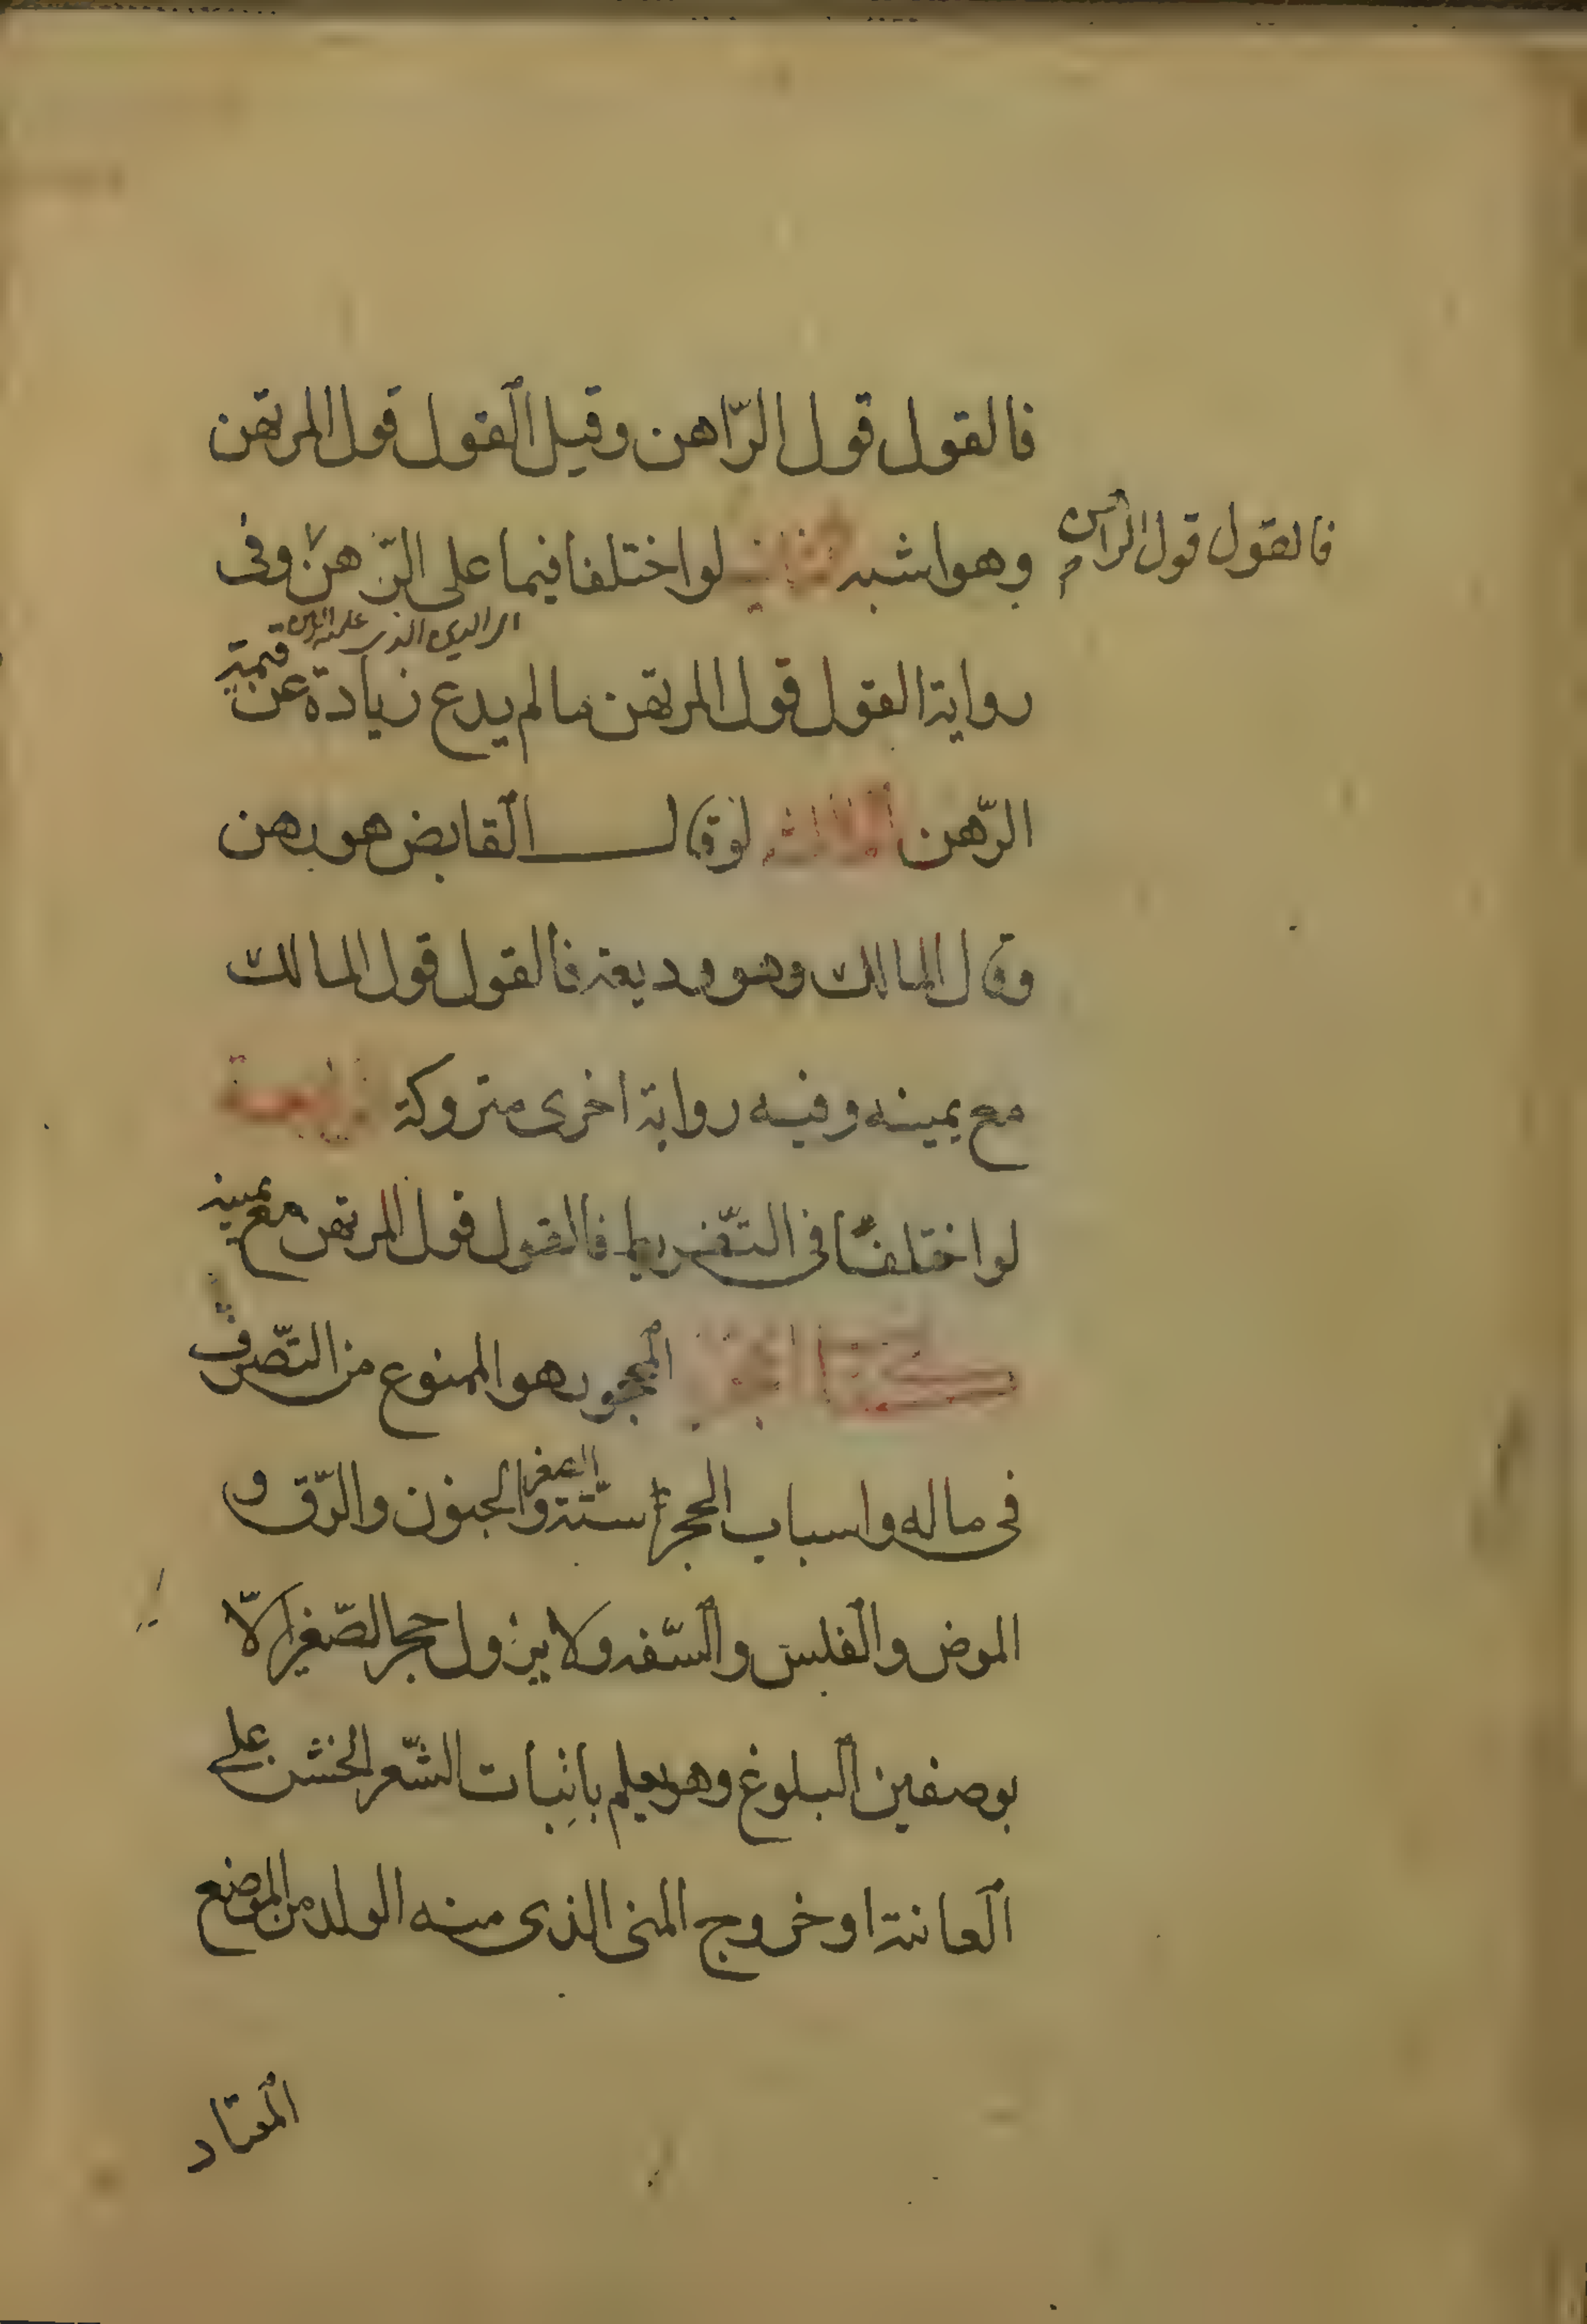 فالقول قول الرّاهن وقيل القول قول المرتهن
وهو اشبه لو اختلفا فيما على الرّهن وفى
فالقول قول الراهن
رواية القول قول المرتهن ما لم يدع زيادة عن قيمة
الرّهن الثالثة لو قال القابض هو رهن
وقال المالك وهو وديعة فالقول قول المالك
مع يمينه وفيه رواية اخرى متروكة الرابعة
لو اختلفا فى التّفريط فالقول قول المرتهن مع يمينه
كتاب الحجر المحجور هو الممنوع من التّصرف
فى ماله واسباب الحجر ستّة الصغر والجنون والرّق و
المرض والفلس والسّفه ولا يزول حجر الصّغير الّا
بوصفين البلوغ وهو يعلم بانبات الشّعر الخشن على
العانة او خروج المنى الذى منه الولد من الموضع
المعتاد